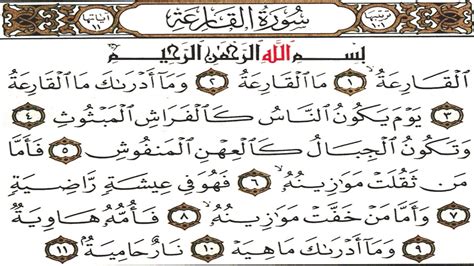 آياتها ١١ سُورَةُ القَارِعَةِ ترتيبها ١٠١
بِسْمِ اللَّهِ الرَّحْمَٰنِ الرَّحِيمِ
الْقَارِعَةُ ١ مَا الْقَارِعَةُ ٢ وَمَا أَدْرَىٰكَ مَا الْقَارِعَةُ
٣ يَوْمَ يَكُونُ النَّاسُ كَالْفَرَاشِ الْمَبْثُوثِ ٤
وَتَكُونُ الْجِبَالُ كَالْعِهْنِ الْمَنفُوشِ ٥ فَأَمَّا
مَن ثَقُلَتْ مَوَٰزِينُهُۥ ٦ فَهُوَ فِي عِيشَةٍ رَّاضِيَةٍ
٧ وَأَمَّا مَنْ خَفَّتْ مَوَٰزِينُهُۥ ٨ فَأُمُّهُۥ هَاوِيَةٌ
٩ وَمَا أَدْرَىٰكَ مَا هِيَهْ ١٠ نَارٌ حَامِيَةٌۢ ١١